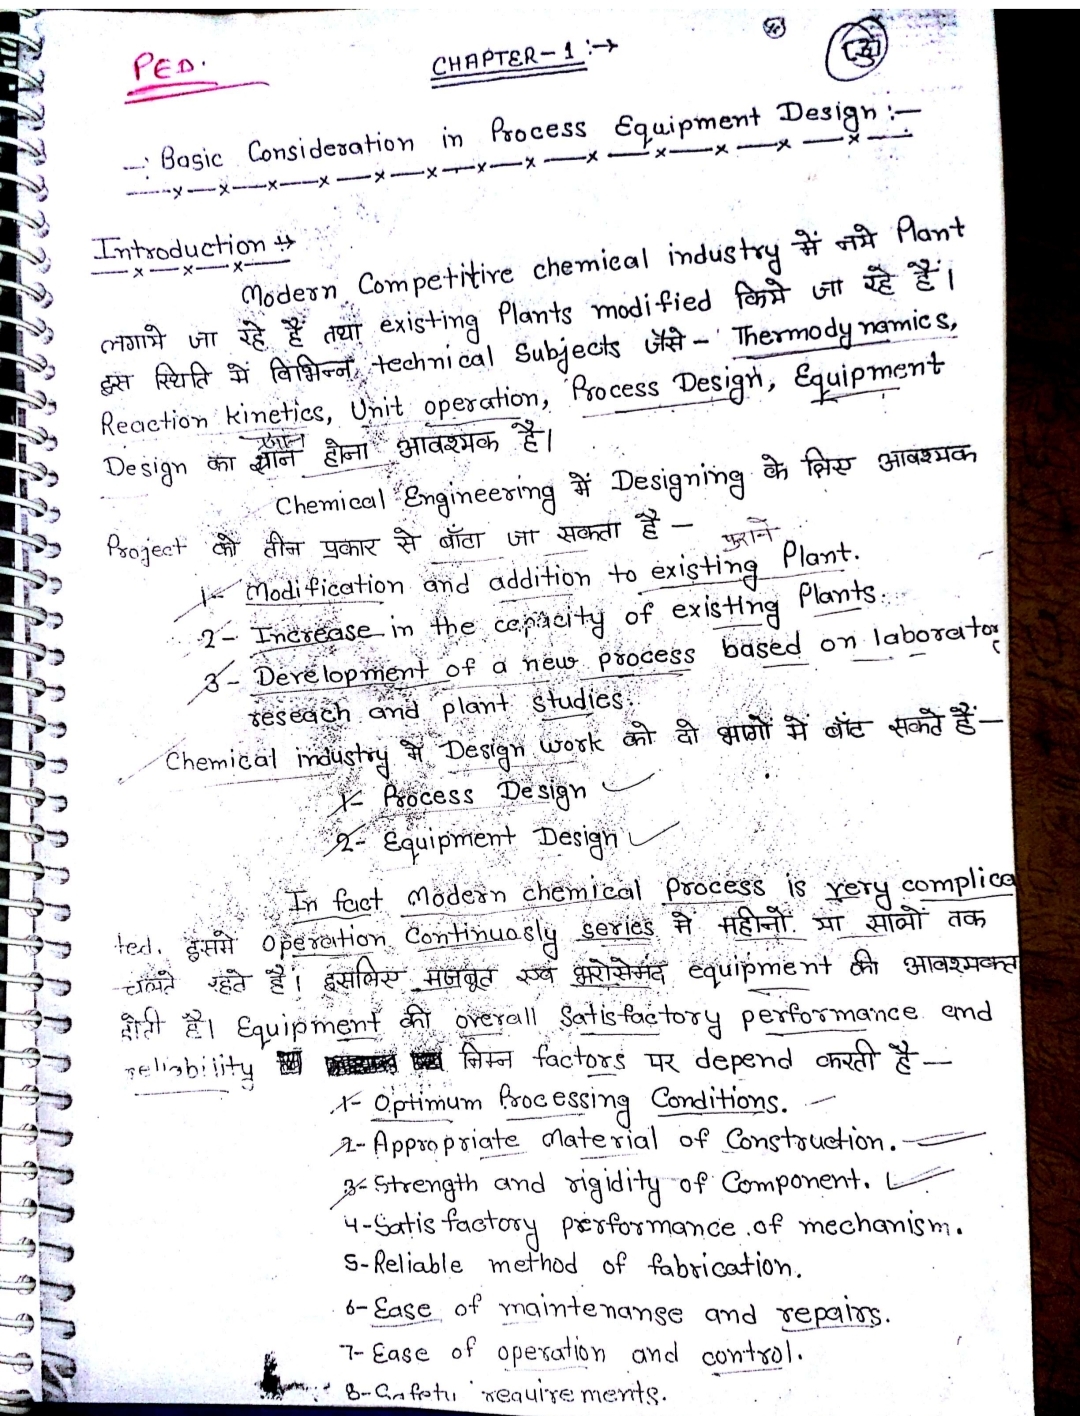 PED.
CHAPTER-1 :→
-: Basic Consideration in Process Equipment Design :-
Introduction :→
Modern Competitive chemical industry में नये Plant
लगाये जा रहे हैं तथा existing Plants modified किये जा रहे हैं।
इस स्थिति में विभिन्न technical Subjects जैसे - Thermodynamics,
Reaction kinetics, Unit operation, Process Design, Equipment
ज्ञान
Design का होना आवश्यक है।
Chemical Engineering में Designing के लिए आवश्यक
Project को तीन प्रकार से बाँटा जा सकता है -
पुराने
1- Modification and addition to existing Plant.
2- Increase in the capacity of existing Plants.
3- Development of a new process based on laborator
reseach and plant studies.
Chemical industry में Design work को दो भागों में बाँट सकते हैं-
1- Process Design
2- Equipment Design
In fact Modern chemical process is very complica
ted. इसमे operation Continuosly series में महीनों या सालों तक
चलते रहते है। इसलिए मजबूत एवं भरोसेमंद equipment की आवश्यकता
होती है। Equipment की overall Satisfactory performance and
reliability निम्न factors पर depend करती है -
1- Optimum Processing Conditions.
2- Appropriate Material of Construction.
3- Strength and rigidity of Component.
4- Satisfactory performance of mechanism.
5- Reliable method of fabrication.
6- Ease of maintenanse and repairs.
7- Ease of operation and control.
8- Safety requirements.